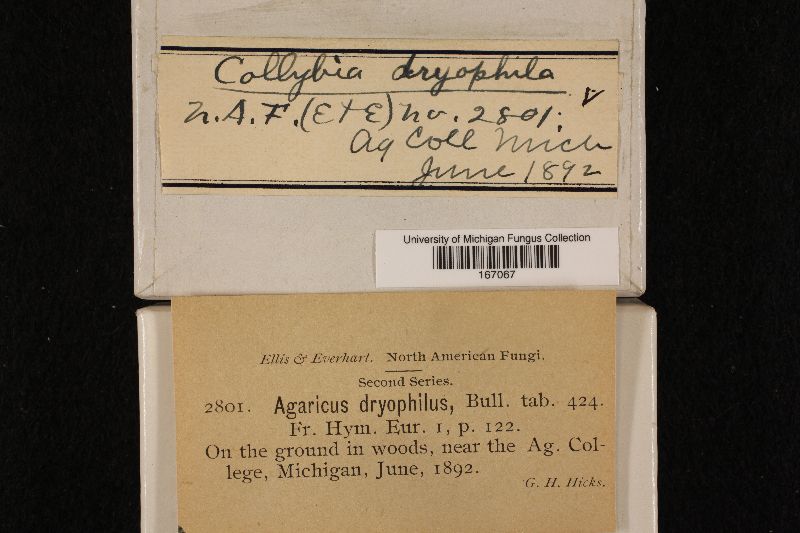 Collybia dryophila
N.A.F. (E+E) no. 2801.
Ag Coll Mich
June 1892
University of Michigan Fungus Collection
167067
Ellis & Everhart. North American Fungi.
Second Series.
2801. Agaricus dryophilus, Bull. tab. 424.
Fr. Hym. Eur. 1, p. 122.
On the ground in woods, near the Ag. Col-
lege, Michigan, June, 1892.
G. H. Hicks.